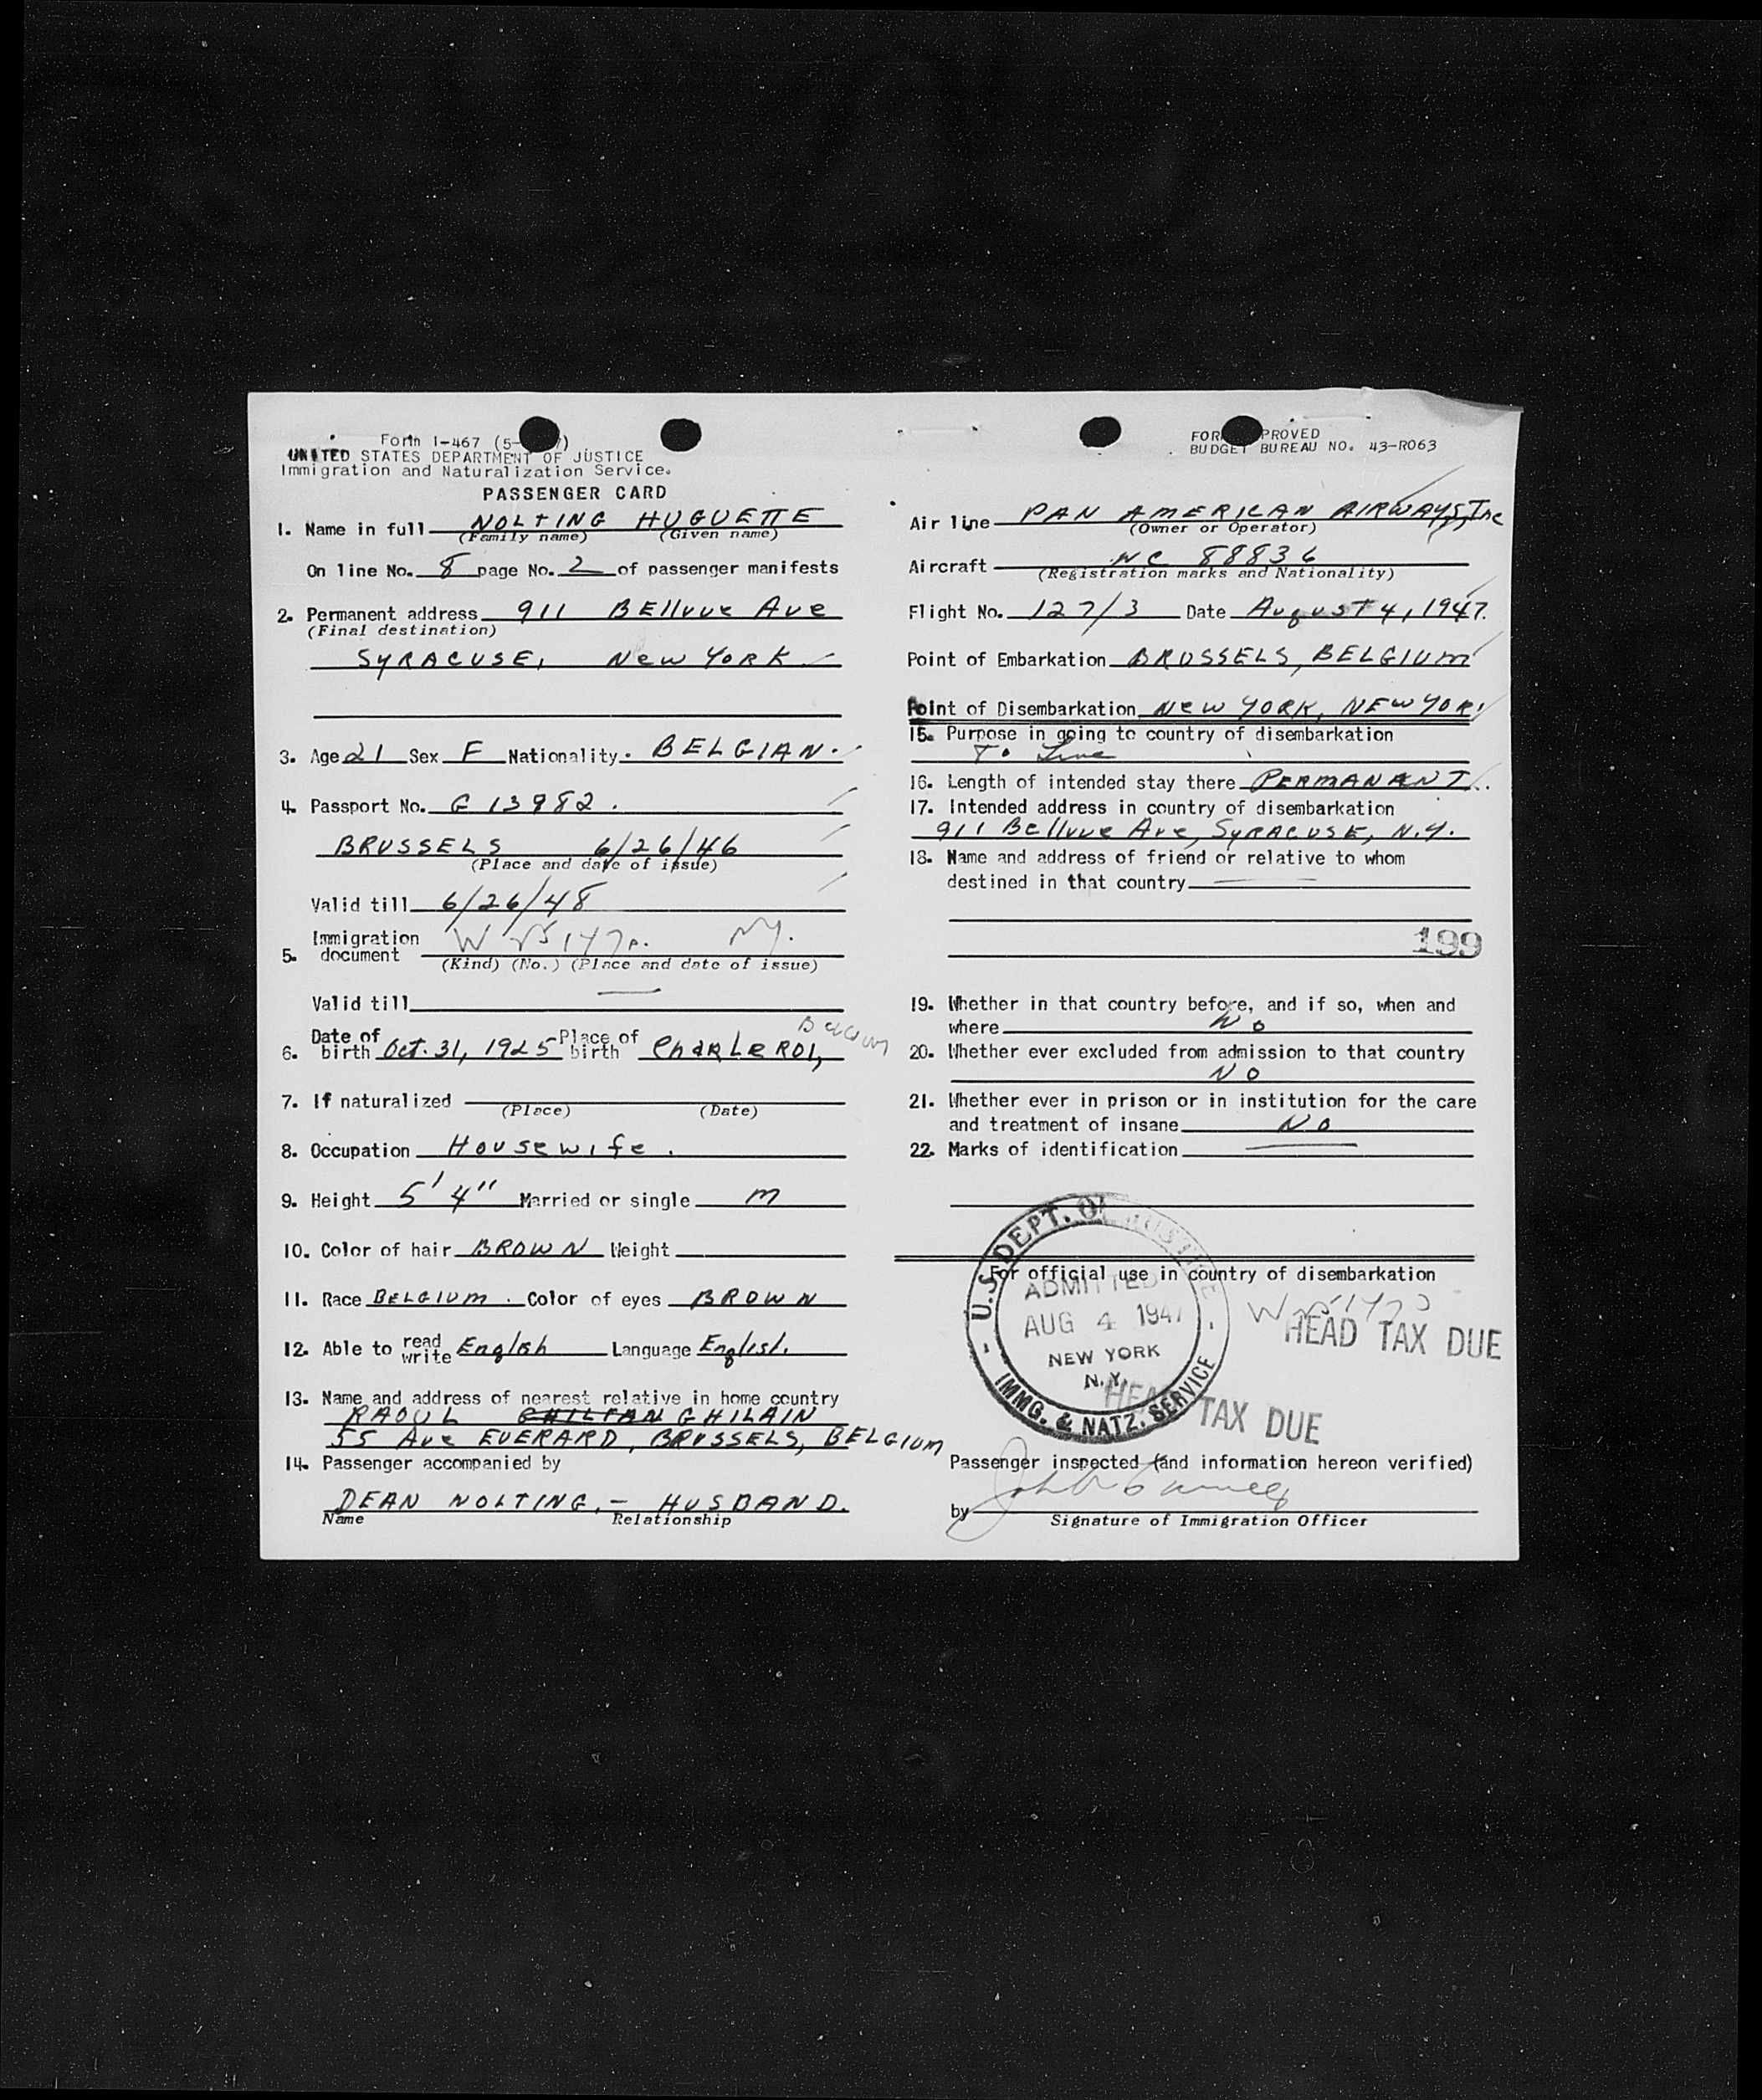 Form I-467 (5-
UNITED STATES DEPARTMENT OF JUSTICE
Immigration and Naturalization Service.
PASSENGER CARD
1. Name in full NOLTING HUGUETTE
(Family name) (Given name)
On line No. 8 page No. 2 of passenger manifests
2. Permanent address 911 BEllvue Ave
(Final destination)
SYRACUSE, New YORK
3. Age 21 Sex F Nationality. BELGIAN.
4. Passport No. G 13982.
BRUSSELS 6/26/46
(Place and date of issue)
Valid till 6/26/48
5. Immigration document N.Y.
(Kind) (No.) (Place and date of issue)
Valid till —
6. Date of birth Oct. 31, 1925 Place of birth CharLeROI,
7. If naturalized
(Place) (Date)
8. Occupation Housewife.
9. Height 5' 4" Married or single m
10. Color of hair BROWN Weight
11. Race BELGIUM. Color of eyes BROWN
12. Able to read write English Language English.
13. Name and address of nearest relative in home country
RAOUL GHILAIN
55 Ave EVERARD, BRUSSELS, BELGIUM
14. Passenger accompanied by
DEAN NOLTING, - HUSBAND.
Name Relationship
FORM APPROVED
BUDGET BUREAU NO. 43-R063
Air line PAN AMERICAN AIRWAYS, Inc
(Owner or Operator)
Aircraft NC 88836
(Registration marks and Nationality)
Flight No. 127/3 Date August 4, 1947.
Point of Embarkation BRUSSELS, BELGIUM
Point of Disembarkation New YORK, NEW YORK
15. Purpose in going to country of disembarkation
To Live
16. Length of intended stay there PERMANANT.
17. Intended address in country of disembarkation
911 Bellvue Ave, SYRACUSE, N.Y.
18. Name and address of friend or relative to whom
destined in that country —
199
19. Whether in that country before, and if so, when and
where No
20. Whether ever excluded from admission to that country
NO
21. Whether ever in prison or in institution for the care
and treatment of insane NO
22. Marks of identification —
For official use in country of disembarkation
U.S. DEPT. OF JUSTICE
ADMITTED
AUG 4 1947
NEW YORK
N.Y.
IMMG. & NATZ. SERVICE
HEAD TAX DUE
HEAD TAX DUE
Passenger inspected (and information hereon verified)
by
Signature of Immigration Officer